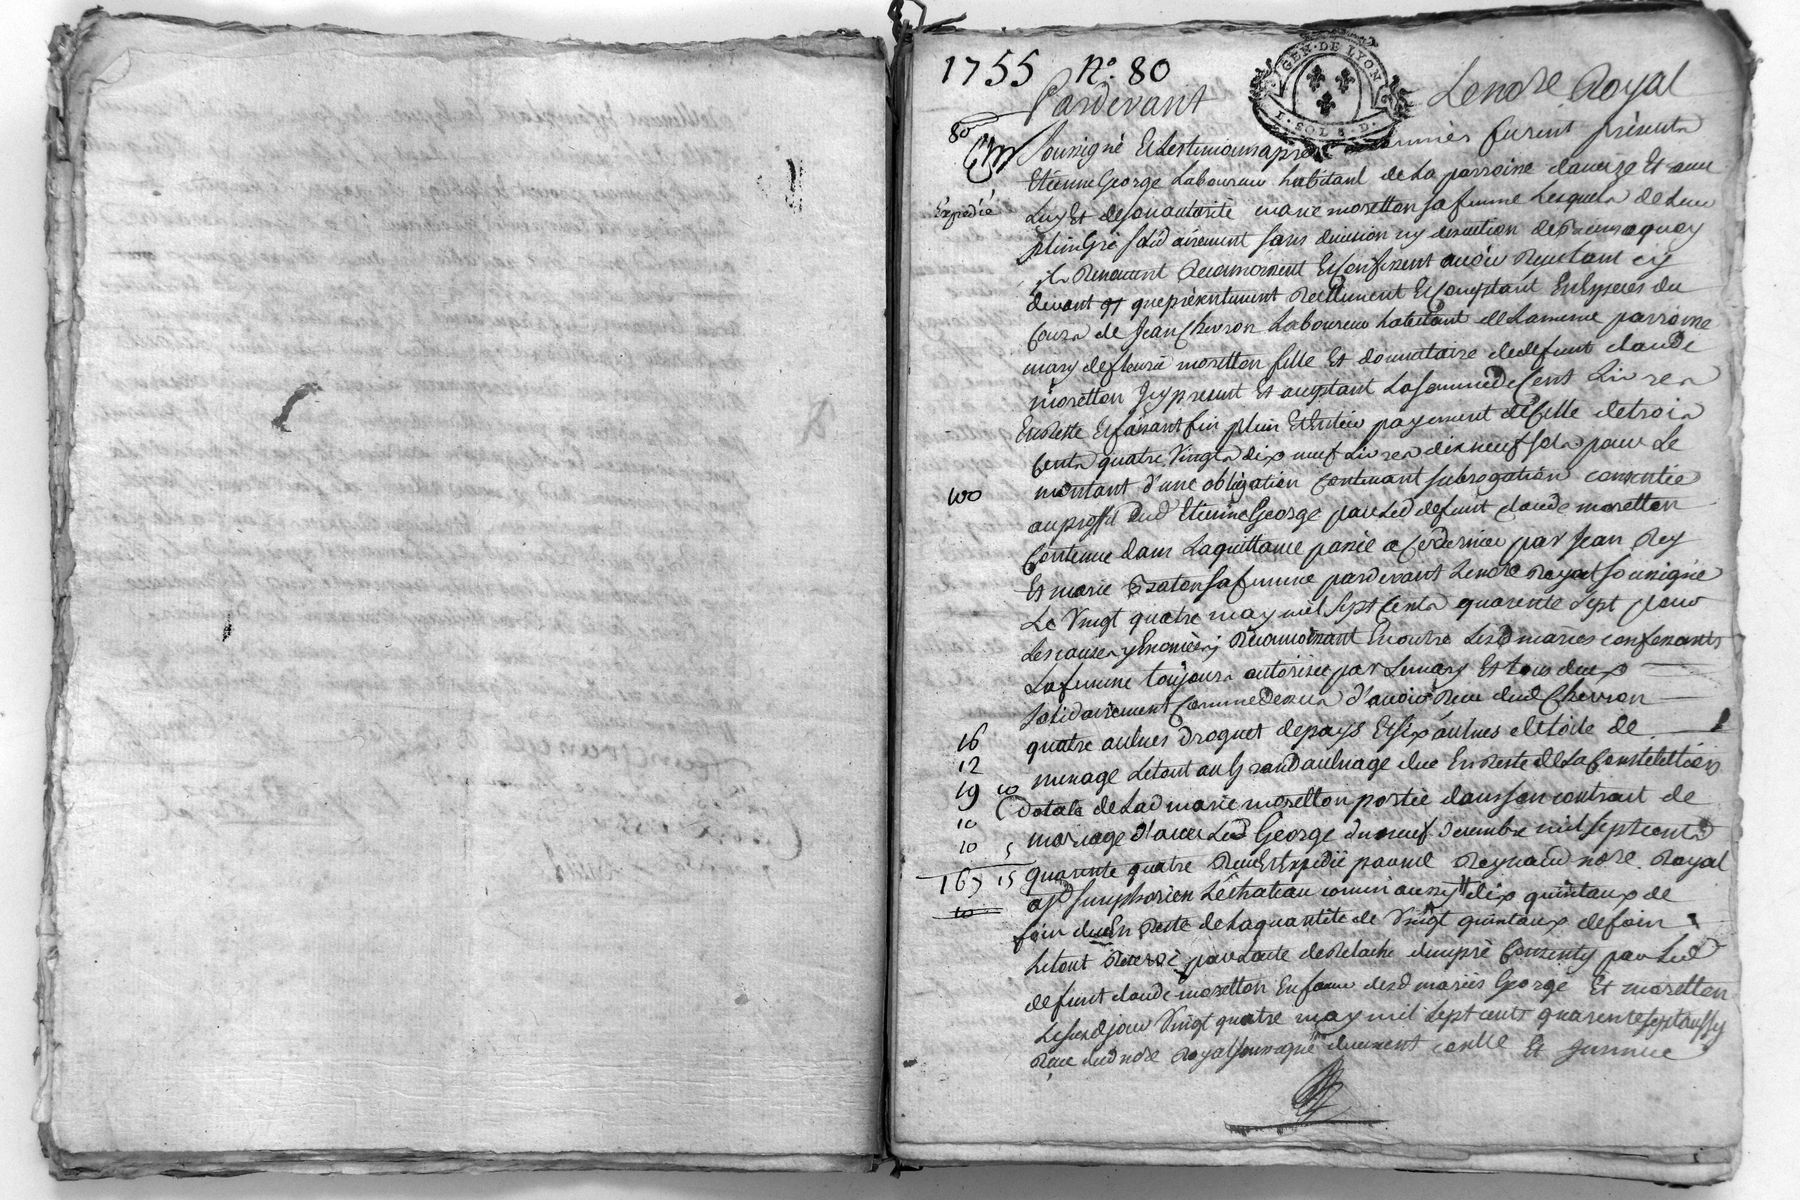 1755 N.° 80
GEN. DE LYON
1. SOL 8. D.
Pardevant Le nore Royal
80
Soussigné Et les temoins apres nommés furent présents
Etienne George Laboureur habitant de La parroisse daveize Et avec
Expedié
Luy Et de son autorité marie moretton sa femme Lesquels de Leur
plein Gré solidairement sans division ny discution de biens a quoy
ils Renoncent Reconnoissent Et Confessent avoir Reçu tant cy
devant que présentement Réellement Et Comptant En Especes du
Cours de Jean Chevron Laboureur habitant de La meme parroisse
mary de fleurie moretton fille Et donnataire de defunt claude
moretton Icy present Et acceptant La somme de Cent Livres
En Reste Et faisant fin plein Et Entier payement de Celle de trois
Cents quatre Vingts dix neuf Livres dix neuf sols pour Le
100
montant d'une obligation Contenant subrogation consentie
au proffit dud Etienne George par Led defunt claude moretton
Contenue dans La quittance passée a Ce dernier par Jean Rey
Et marie sa femme pardevant Le nore Royal soussigné
Le Vingt quatre may mil sept Cents quarente sept pour
Les causes y Enoncées Reconnoissant En outre Lesd mariés confessants
La femme toujours autorisée par Le mary Et tous deux
solidairement Comme dessus d'avoir Reçu dud Chevron
16
quatre aulnes Droguet de pays Et six aulnes de toile de
12
menage Le tout au Grand aulnage due En Reste de La Constitution
19 10
Dotale de Lad marie moretton portée dans son contrat de
10
mariage d'avec Led George du neuf Decembre mil sept cents
10 5
quarente quatre Reçu Et Expedié par me Reynaud nore Royal
167 15
a St Simphorien Le chateau comm aussy dix quintaux de
10
foin due En Reste de La quantité de Vingt quintaux de foin
Le tout Reservé par L'acte de Relache du pré Consenty par Led
defunt claude moretton En faveur desd mariés George Et moretton
Le susd jour Vingt quatre may mil sept cents quarente sept aussy
Reçu dud nore Royal soussigné duement conllé Et Insinué